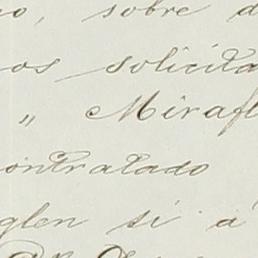 o, sobre d
os solicita
" Mirafl
contratado
glen si á